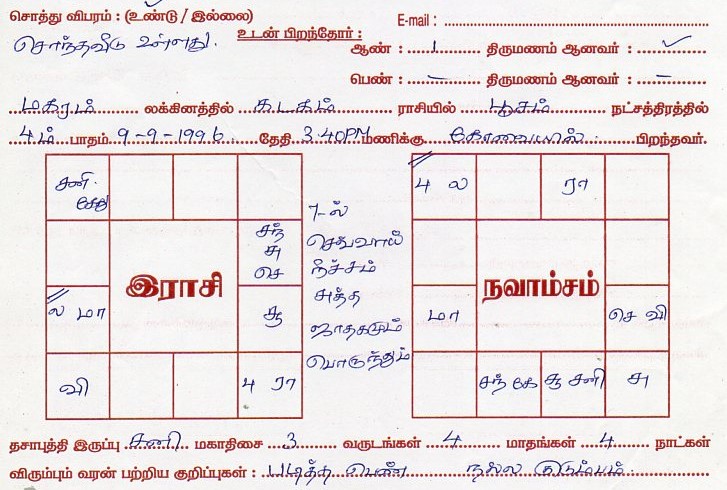 சொத்து விபரம் : (உண்டு / இல்லை) E-mail :
சொந்தவீடு உள்ளது. உடன் பிறந்தோர் : ஆண் : 1 திருமணம் ஆனவர் : ✓
பெண் : – திருமணம் ஆனவர் : –
மகரம் லக்கினத்தில் கடகம் ராசியில் பூசம் நட்சத்திரத்தில்
4ம் பாதம் 9-9-1996 தேதி 3.40PM மணிக்கு கோவையில் பிறந்தவர்.
சனி கேது
சந் சு செ
இராசி
ல மா
சூ
வி
4 ரா
7-ல்
செவ்வாய்
நீச்சம்
சுத்த
ஜாதகமும்
பொருந்தும்
4 ல ரா
நவாம்சம்
மா செ வி
சந் கே சூ சனி சு
தசாபுத்தி இருப்பு சனி மகாதிசை 3 வருடங்கள் 4 மாதங்கள் 4 நாட்கள்
விரும்பும் வரன் பற்றிய குறிப்புகள் : படித்த பெண் நல்ல குடும்பம்